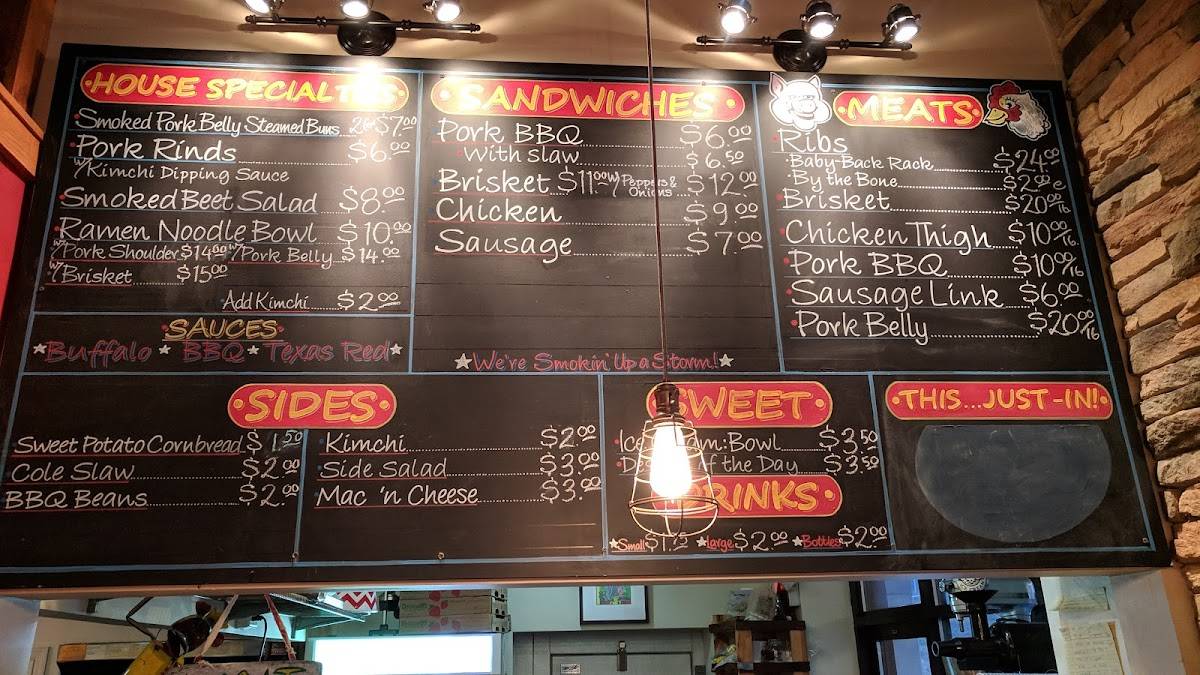 HOUSE SPECIALTIES
Smoked Pork Belly Steamed Buns 2 for $7.00
Pork Rinds $6.00
w/Kimchi Dipping Sauce
Smoked Beet Salad $8.00
Ramen Noodle Bowl $10.00
w/Pork Shoulder $14.00 w/Pork Belly $14.00
w/Brisket $15.00
Add Kimchi $2.00
SAUCES
Buffalo BBQ Texas Red
SANDWICHES
Pork BBQ $6.00
With slaw $6.50
Brisket $11.00 w/Peppers & Onions $12.00
Chicken $9.00
Sausage $7.00
We're Smokin' Up a Storm!
MEATS
Ribs
Baby-Back Rack $24.00
By the Bone $2.00 e
Brisket $20.00/lb
Chicken Thigh $10.00/lb.
Pork BBQ $10.00/lb
Sausage Link $6.00
Pork Belly $20.00/lb
SIDES
Sweet Potato Cornbread $1.50
Cole Slaw $2.00
BBQ Beans $2.00
Kimchi $2.00
Side Salad $3.00
Mac 'n Cheese $3.00
SWEET
Bowl $3.50
of the Day $3.50
DRINKS
Small Large $2.00 Bottles $2.00
THIS...JUST-IN!